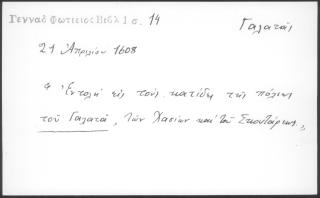 Γενναδ Φωτιειος Βιβλ 1 σ. 14
Γαλατᾶς
21 Ἀπριλίου 1608
"Ἐντολὴ εἰς τοὺς κατίδη τῆς πόλεως
τοῦ Γαλατᾶ, τῶν Χασίων καὶ τοῦ Σκουτάρεως"